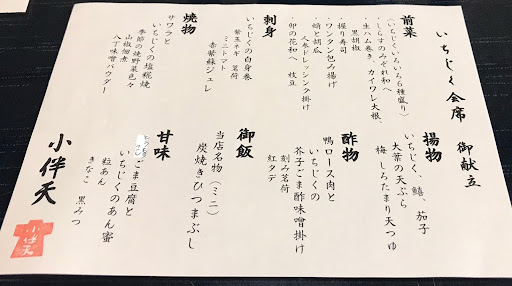 いちじく会席 御献立
前菜
(いちじくいろいろ6種盛り)
・しらすのみぞれ和へ
・生ハム巻き、カイワレ大根、
黒胡椒
・握り寿司
・ワンタン包み揚げ
・蛸と胡瓜
人参ドレッシング掛け
・卯の花和へ 枝豆
刺身
いちじくの白身巻
紫玉ネギ 茗荷
ミニトマト
赤紫蘇ジュレ
焼物
サワラと
いちじくの塩糀焼
季節の焼野菜色々
山椒佃煮
八丁味噌パウダー
揚物
いちじく、鱚、茄子
大葉の天ぷら
梅 しろたまり天つゆ
酢物
鴨ロース肉と
いちじくの
芥子ごま酢味噌掛け
刻み茗荷
紅タデ
御飯
当店名物(ミニ)
炭焼きひつまぶし
甘味
ごま豆腐と
いちじくのあん蜜
粒あん
きなこ 黒みつ
小伴天
小伴天